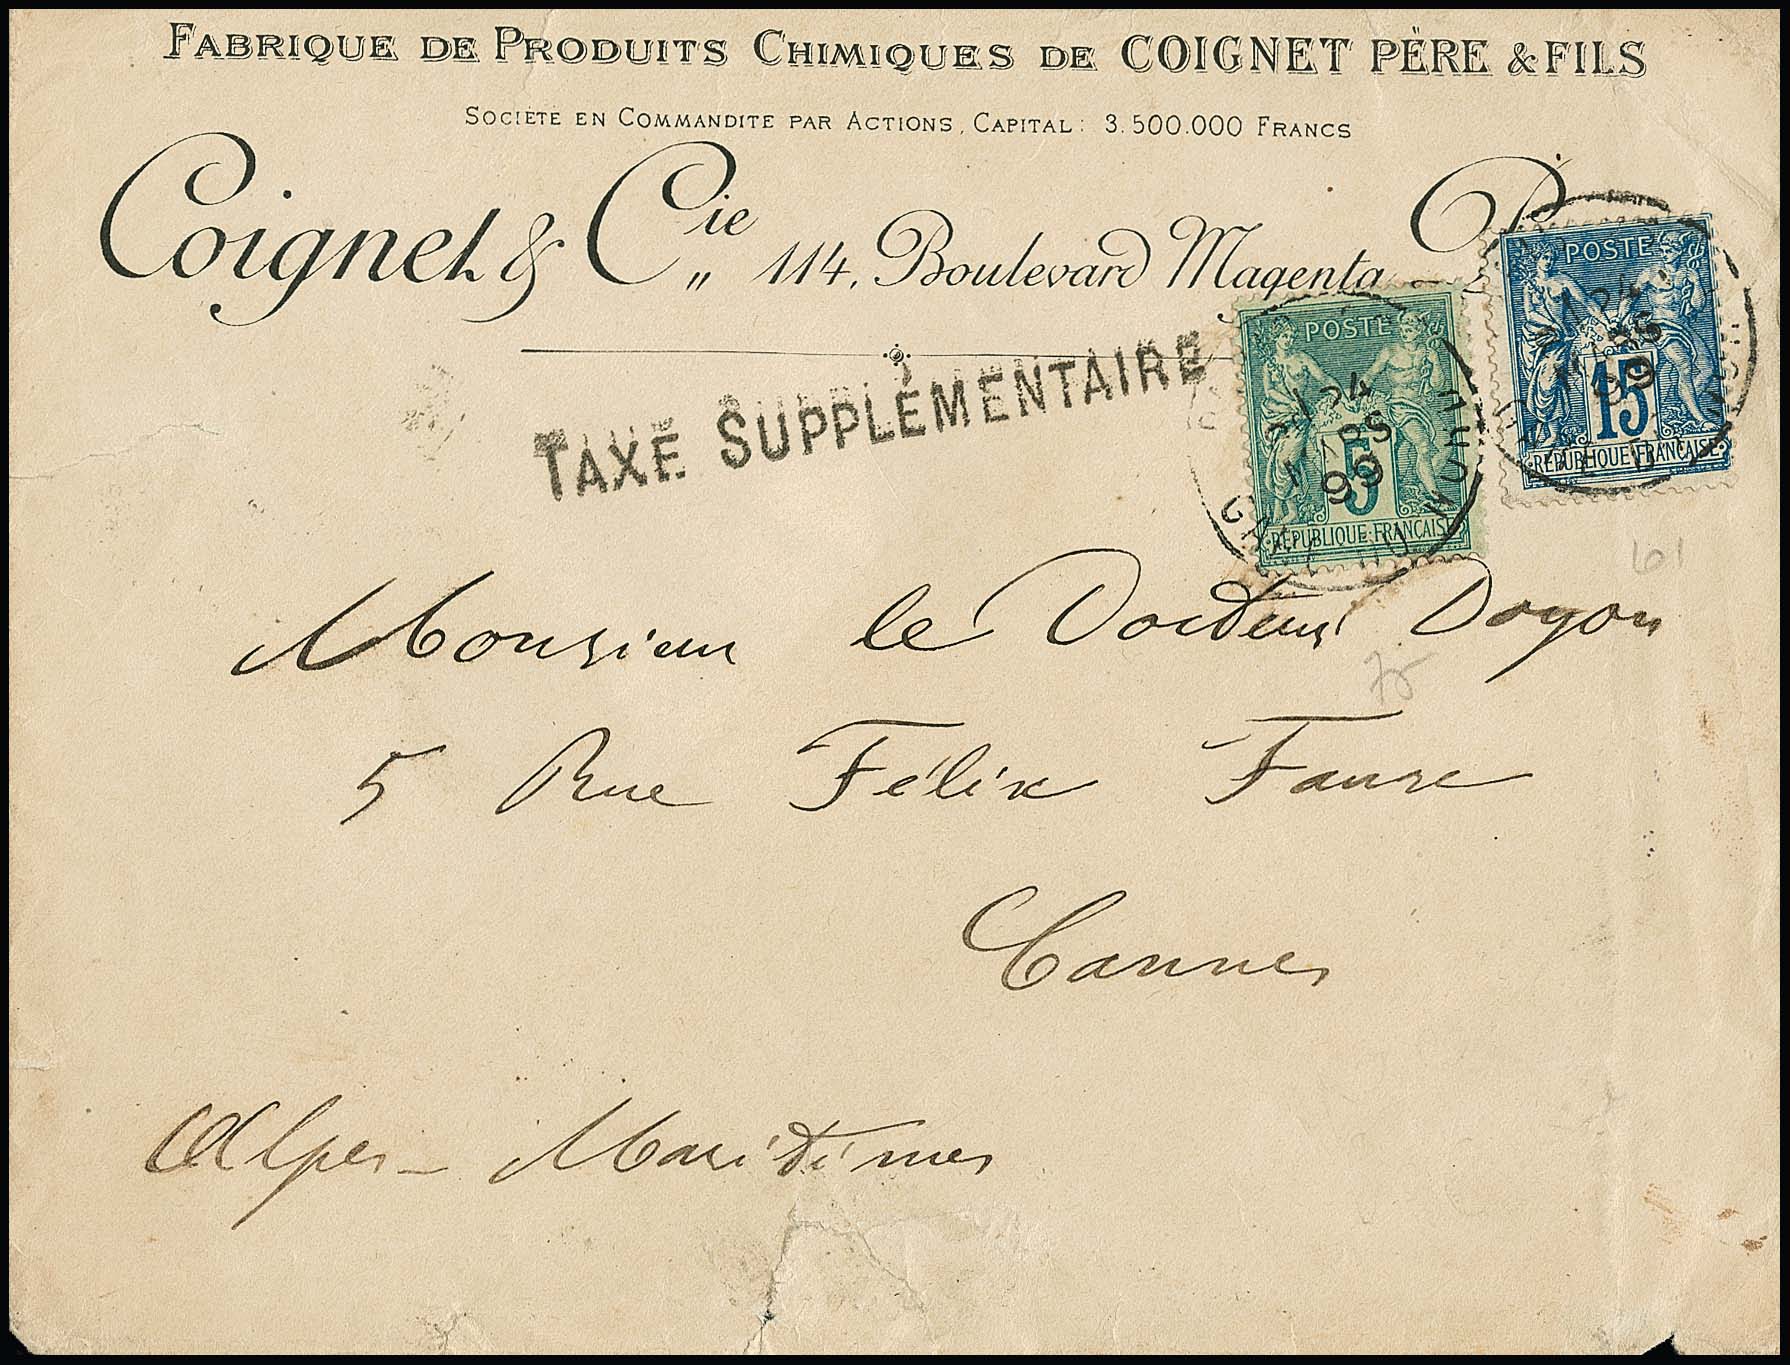 FABRIQUE DE PRODUITS CHIMIQUES DE COIGNET PÈRE & FILS
SOCIÉTÉ EN COMMANDITE PAR ACTIONS, CAPITAL: 3.500.000 FRANCS
Coignet & Cie 114, Boulevard Magenta
TAXE SUPPLÉMENTAIRE
POSTE
15
REPUBLIQUE FRANÇAISE
24
MARS
99
POSTE
5
REPUBLIQUE FRANÇAISE
24
MARS
99
61
Monsieur le Docteur Doyon
5 Rue Félix Faure
Cannes
Alpes-Maritimes